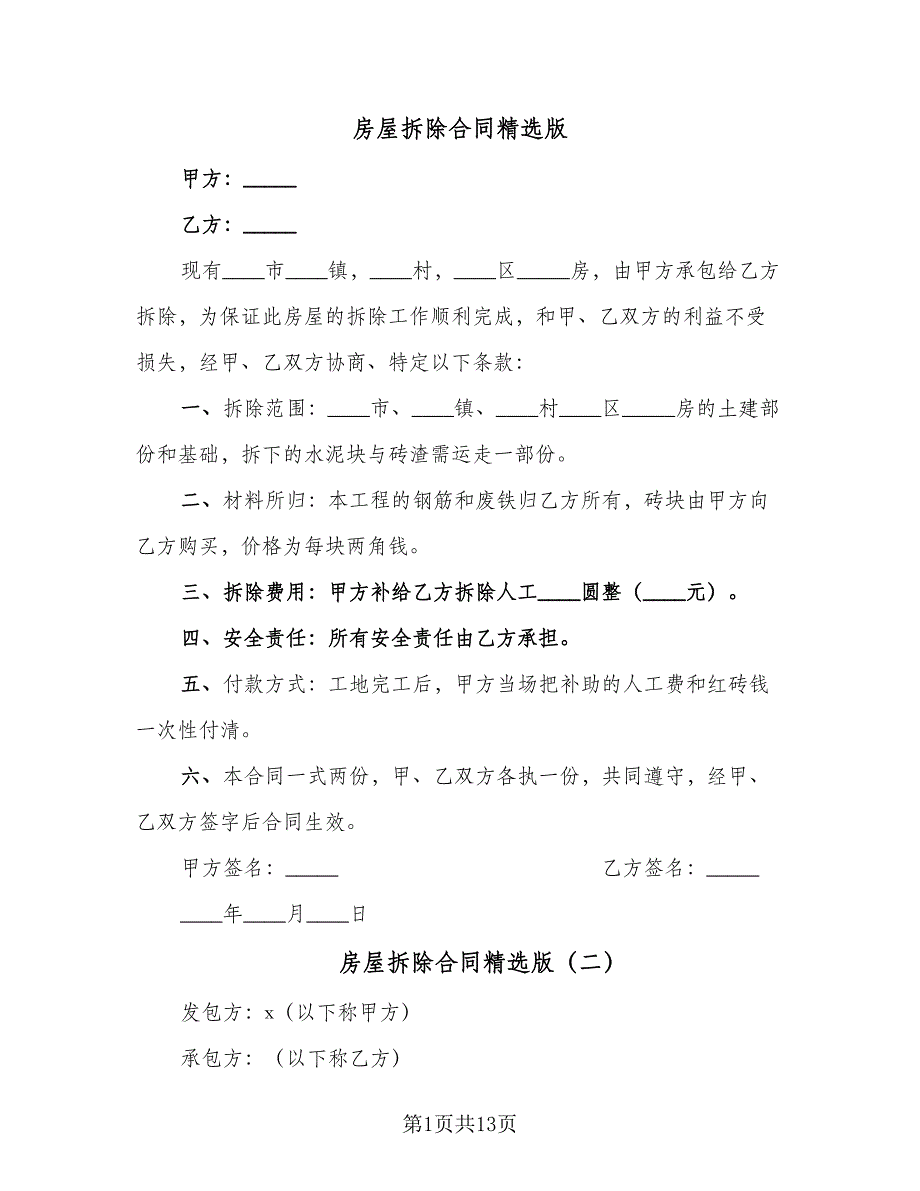 房屋拆除合同精选版
甲方：_____
乙方：_____
现有____市____镇，____村，____区_____房，由甲方承包给乙方
拆除，为保证此房屋的拆除工作顺利完成，和甲、乙双方的利益不受
损失，经甲、乙双方协商、特定以下条款：
一、拆除范围：____市、____镇、____村____区_____房的土建部
份和基础，拆下的水泥块与砖渣需运走一部份。
二、材料所归：本工程的钢筋和废铁归乙方所有，砖块由甲方向
乙方购买，价格为每块两角钱。
三、拆除费用：甲方补给乙方拆除人工____圆整（____元）。
四、安全责任：所有安全责任由乙方承担。
五、付款方式：工地完工后，甲方当场把补助的人工费和红砖钱
一次性付清。
六、本合同一式两份，甲、乙双方各执一份，共同遵守，经甲、
乙双方签字后合同生效。
甲方签名：_____ 乙方签名：_____
____年____月____日
房屋拆除合同精选版（二）
发包方：x（以下称甲方）
承包方：（以下称乙方）
第1页共13页